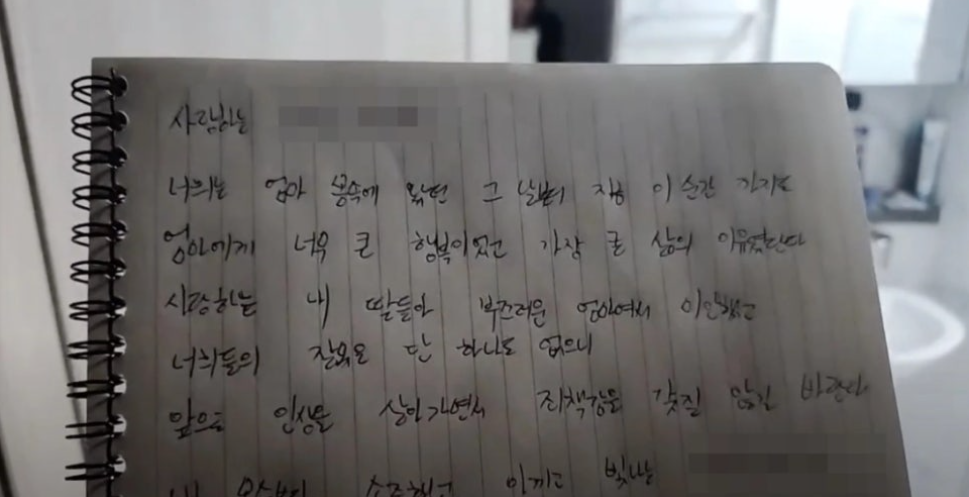 사랑하는
너희는 엄마 뱃속에 왔던 그 날부터 지금 이 순간 까지도
엄마에게 너무 큰 행복이었고 가장 큰 삶의 이유였단다
사랑하는 내 딸들아 부끄러운 엄마여서 미안했고
너희들의 잘못은 단 하나도 없으니
앞으로 인생을 살아가면서 죄책감을 갖질 않길 바란다
소중했고 아끼고 빛나는